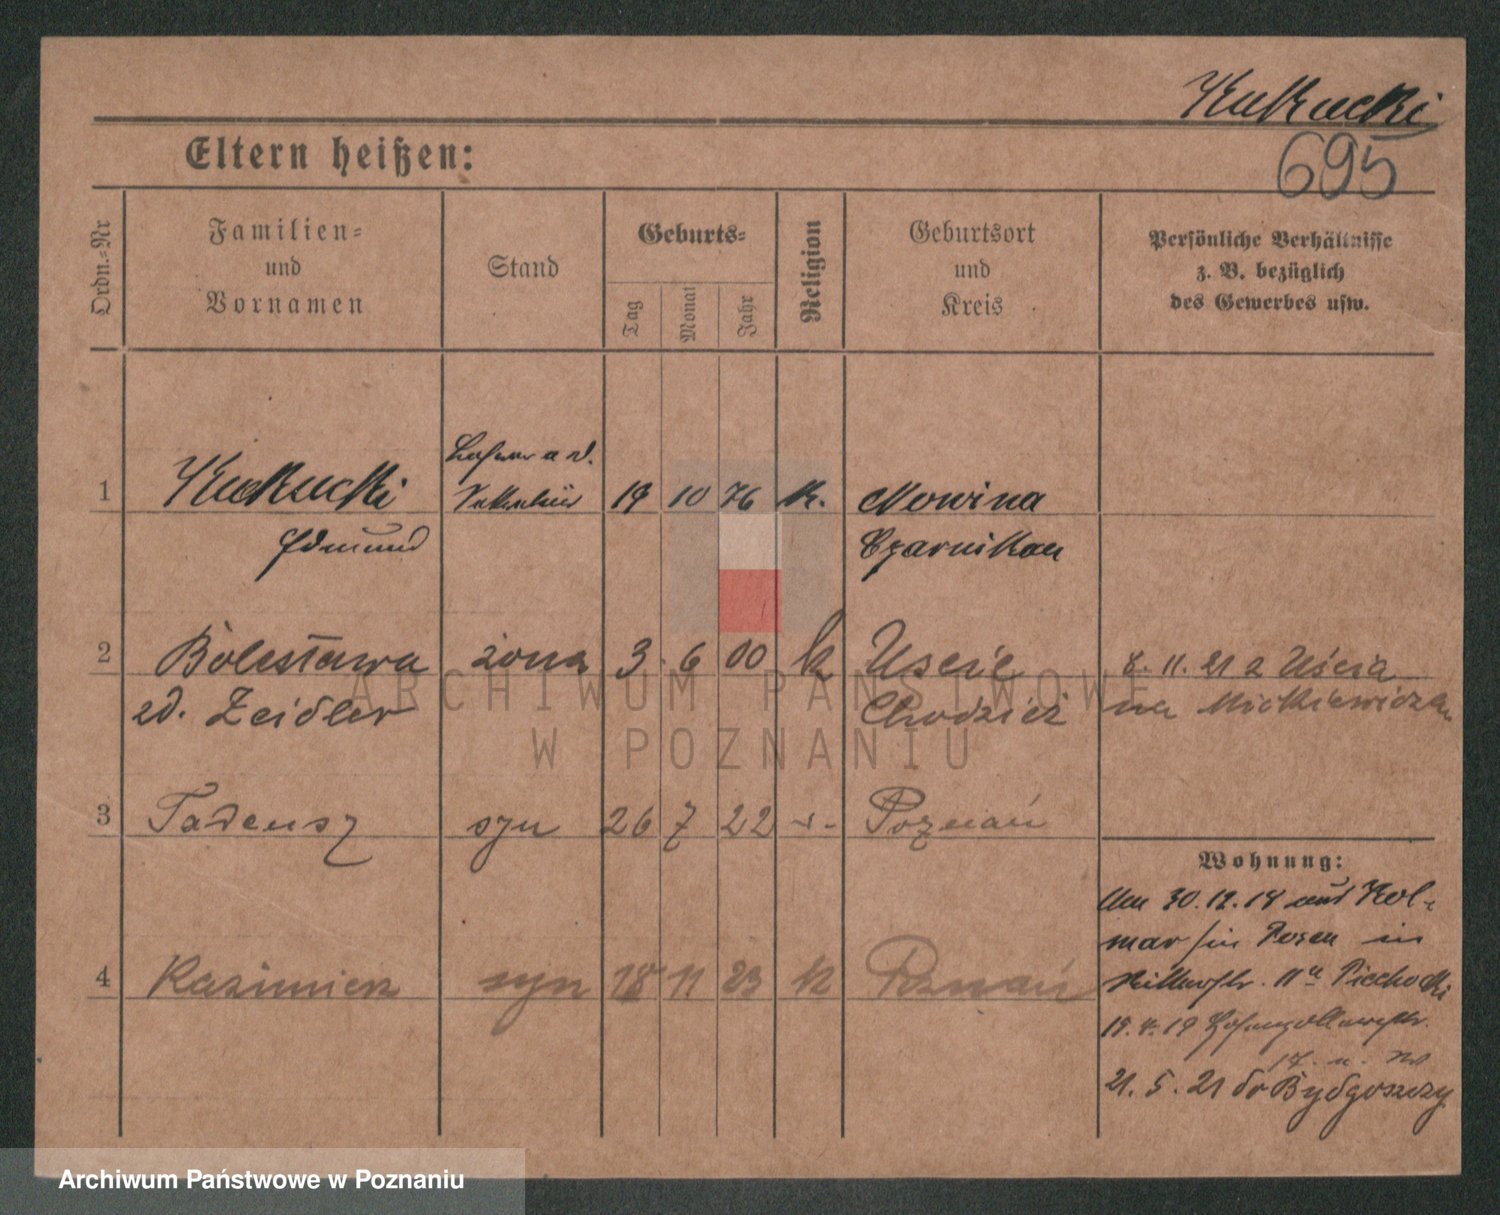 Kukucki
695
Eltern heißen:
Ordn.-Nr
Familien-
und
Vornamen
Stand
Geburts-
Tag
Monat
Jahr
Religion
Geburtsort
und
Kreis
Persönliche Verhältnisse
z. B. bezüglich
des Gewerbes usw.
1
Kukucki
Edmund
19 10 76 k.
Nowina
Czarnikau
2 Bolesława żona 3. 6 00 k Uście 8. 11. 21 z Uścia
zd. Zeidler Chodzież na Mickiewicza
3 Tadeusz syn 26 7 22 -"- Poznań
4 Kazimierz syn 18 11 23 k Poznań
Wohnung:
Am 30.12.18 aus Kol-
mar in Posen in
11a Piechocki
19.4.19 Hohenzollernstr.
21. 5. 21 do Bydgoszczy
ARCHIWUM PAŃSTWOWE
W POZNANIU
Archiwum Państwowe w Poznaniu